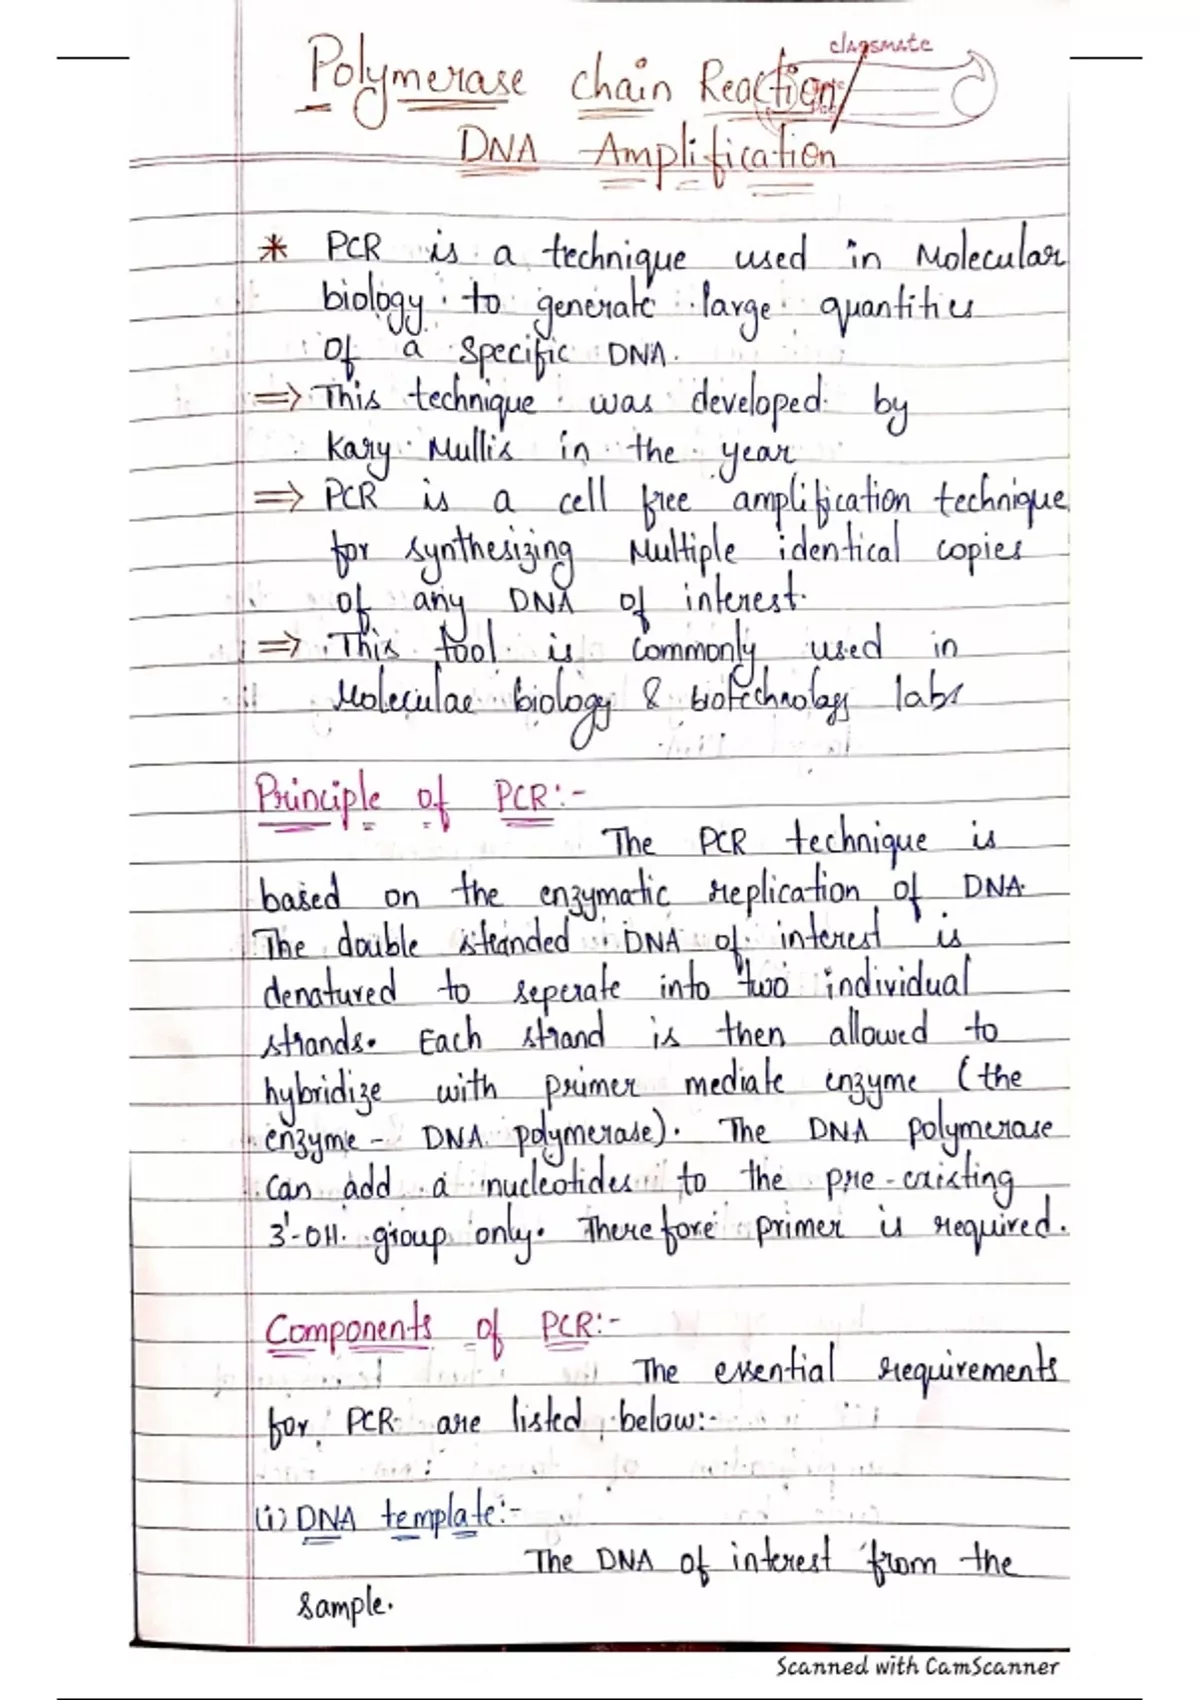 classmate
Polymerase chain Reaction/
DNA Amplification
* PCR is a technique used in Molecular
biology to generate large quantities
of a specific DNA.
=> This technique was developed by
Kary Mullis in the year
=> PCR is a cell free amplification technique
for synthesizing Multiple identical copies
of any DNA of interest.
=> This tool is commonly used in
Moleculae biology & biotechnology labs
Principle of PCR:-
The PCR technique is
based on the enzymatic replication of DNA.
The double stranded DNA of interest is
denatured to seperate into two individual
strands. Each strand is then allowed to
hybridize with primer mediate enzyme (the
enzyme - DNA polymerase). The DNA polymerase
can add a nucleotides to the pre-existing
3'-OH group only. Therefore primer is required.
Components of PCR:-
The essential requirements
for PCR are listed below:-
(i) DNA template:-
The DNA of interest from the
sample.
Scanned with CamScanner